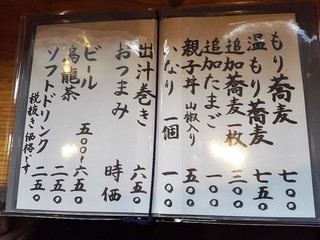 もり蕎麦 七〇〇
温もり蕎麦 七五〇
追加蕎麦一枚 三〇〇
追加たまご 一〇〇
親子丼 山椒入り 五〇〇
いなり 一個 一〇〇
出汁巻き 六五〇
おつまみ 時価
ビール 五〇〇〜六五〇
烏龍茶 二五〇
ソフトドリンク 二五〇
税抜き価格です